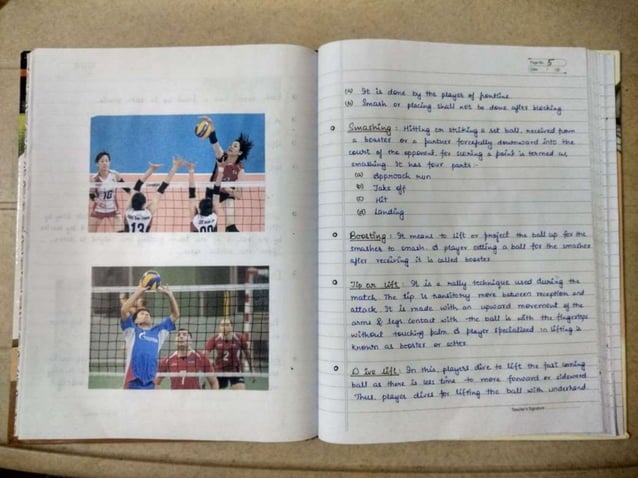 10
13
2
Page No. 5
Date
(a) It is done by the player of frontline
(b) Smash or placing shall not be done after blocking
Smashing : Hitting or striking a set ball, received from
a booster or a partner forcefully downward into the
court of the opponent for scoring a point is termed as
smashing. It has four parts :-
(a) Approach run
(b) Take off
(c) Hit
(d) Landing
Boosting : It means to lift or project the ball up for the
smasher to smash. A player setting a ball for the smasher
after receiving it is called booster
Tip or Lift : It is a rally technique used during the
match. The tip is transitory move between reception and
attack. It is made with an upward movement of the
arms & legs. Contact with the ball is with the fingertips
without touching palm. A player specialized in lifting is
known as booster or setter.
Dive lift : In this, players dive to lift the fast coming
ball as there is less time to move forward or sideward.
Thus, player dives for lifting the ball with underhand
Teacher's Signature